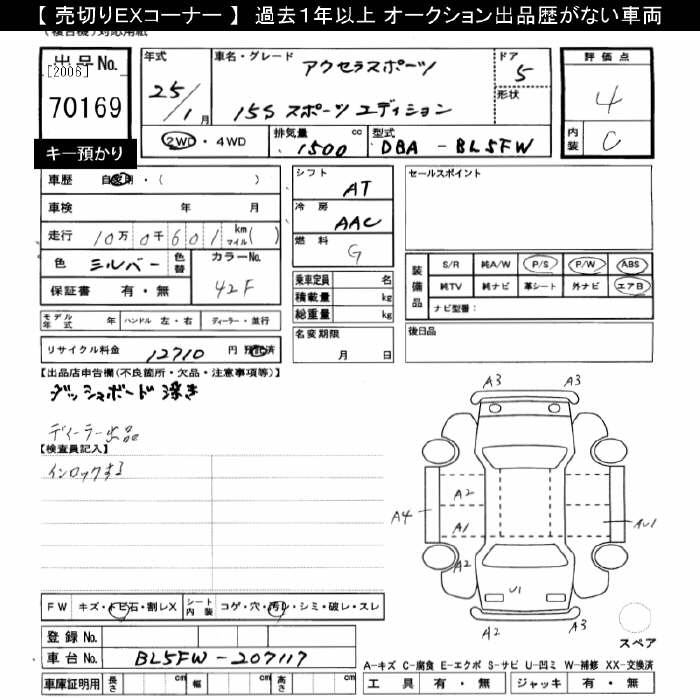 【 売切りEXコーナー 】 過去１年以上 オークション出品歴がない車両
(複合機)対応用紙
出品No.
[2006]
70169
キー預かり
年式
25/1月
車名・グレード
アクセラスポーツ
15S スポーツエディション
ドア
5
形状
2WD・4WD
排気量
1500 cc
型式
DBA - BL5FW
評価点
4
内装
C
車歴 自家用・( )
車検 年 月
走行 10万 0千 601 km マイル( )
色 シルバー 色替
カラーNo.
42F
保証書 有・無
シフト
AT
冷房
AAC
燃料
G
乗車定員 名
積載量 kg
総重量 kg
名変期限
月 日
セールスポイント
装備品
S/R 純A/W P/S P/W ABS
純TV 純ナビ 革シート 外ナビ エアB
ナビ型番：
後日品
モデル年式 年 ハンドル 左・右 ディーラー・並行
リサイクル料金 12710 円 預託済
【出品店申告欄(不良箇所・欠品・注意事項等)】
ダッシュボード浮き
ディーラー出品
【検査員記入】
インロックする
A3 A3
A2
A4 A1 AU1
A2
U1
A2 A3
スペア
FW キズ・トビ石・割レX シート内装 コゲ・穴・汚レ・シミ・破レ・スレ
登録No.
車台No. BL5FW-207117
車庫証明用 長さ cm 幅 cm 高さ cm
A-キズ C-腐食 E-エクボ S-サビ U-凹ミ W-補修 XX-交換済
工具 有・無 ジャッキ 有・無